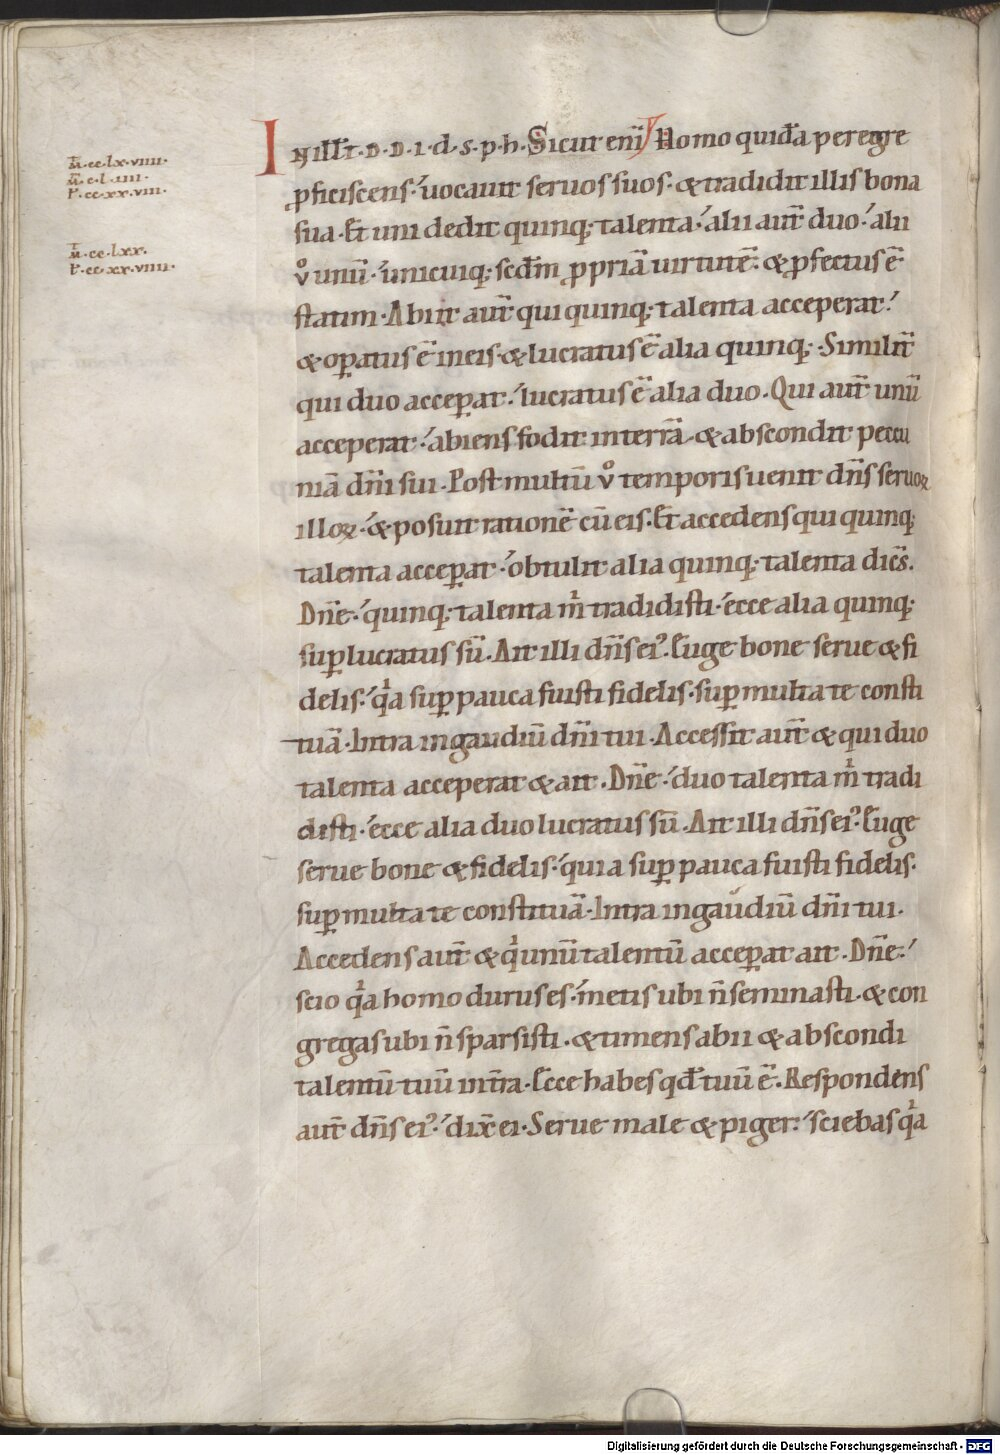 M̅·cc·lx·viiii·
M̅·c·l·iiii·
L̅·cc·xx·viii·
M̅·cc·lxx·
L̅·cc·xx·viiii·
IN ill̅ t̅·D·D·I·d·s·p·h·Sicut eni̅ Homo quida̅ peregre
ꝓficiscens·uocauit seruos suos·&tradidit illis bona
sua·Et uni dedit quinq;·talenta·alii aut̅ duo·alii
v̊ unu̅·unicuiq; scd̅m ꝓpria̅ uirtute̅·&ꝓfectus e̅
statim·Abiit aut̅ qui quinq;·talenta acceperat·
&oꝑatus e̅ in eis·&lucratus e̅ alia quinq;·Similit̅
qui duo acceꝑat·lucratus e̅ alia duo·Qui aut̅ unu̅
acceperat·abiens fodit in terra̅·&abscondit peccu
nia̅ dn̅i sui·Post multu̅ v̊ temporis uenit dn̅s seruoꝝ
illoꝝ·&posuit ratione̅ cu̅ eis·Et accedens qui quinq;
talenta acceꝑat·obtulit alia quinq;·talenta dice̅s.
Dn̅e·quinq;·talenta mⁱ tradidisti·ecce alia quinq;
suꝑlucratus su̅·Ait illi dn̅s ei᾽·Euge bone serue & fi
delis·qⁱa suꝑ pauca fuisti fidelis·suꝑ multa te consti
tua̅·Intra in gaudiu̅ dn̅i tui·Accessit aut̅ & qui duo
talenta acceperat & ait·Dn̅e·duo talenta mⁱ tradi
disti·ecce alia duo lucratus su̅·Ait illi dn̅s ei᾽·Euge
serue bone & fidelis·quia suꝑ pauca fuisti fidelis·
suꝑ multa te constitua̅·Intra in gaudiu̅ dn̅i tui·
Accedens aut̅ & qⁱ unu̅ talentu̅ acceꝑat ait·Dn̅e·
scio qⁱa homo durus es·metis ubi n̅ seminasti·& con
gregas ubi n̅ sparsisti·&timens abii & abscondi
talentu̅ tuu̅ in t̅ra·Ecce habes qd̅ tuu̅ e̅·Respondens
aut̅ dn̅s ei᾽·dix̅ ei·Serue male & piger·sciebas qⁱa
Digitalisierung gefördert durch die Deutsche Forschungsgemeinschaft - DFG